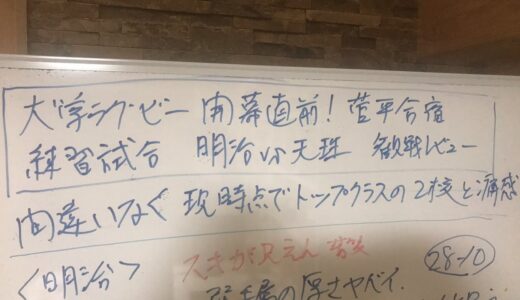 大学ラグビー 開幕直前! 菅平合宿
練習試合 明治vs天理 観戦レビュー
間違いなく 現時点でトップクラスの2校と痛感
〈明治〉 スキが見えん 28-10
層の厚さヤバイ.